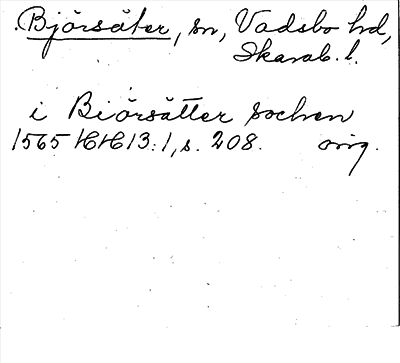 Björsäter, sn, Vadsbo hd,
Skarab. l.
i Biörsätter sochen
1565 HH 13:1, s. 208. orig.